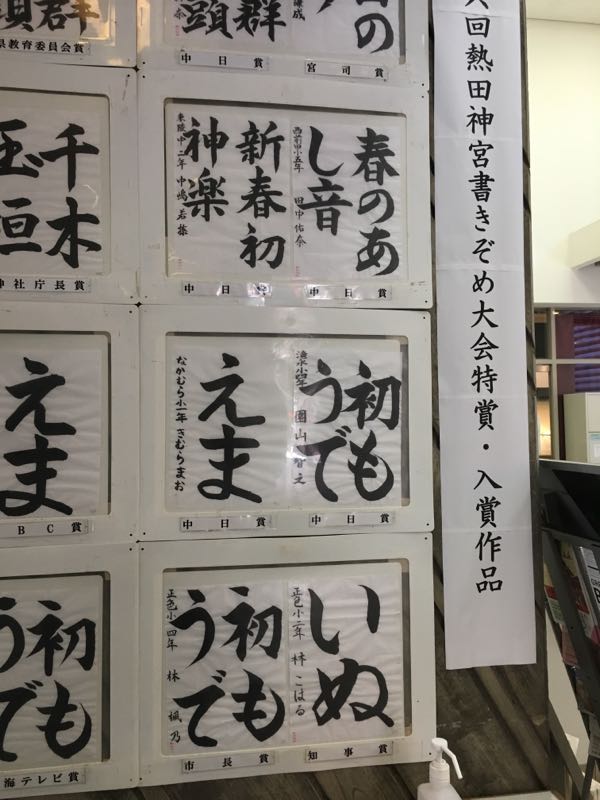 回熱田神宮書きぞめ大会特賞・入賞作品
県教育委員会賞
中日賞
宮司賞
春のあ
し音
西前田小五年 田中佑奈
新春初
神楽
東陵中二年 中嶋若
中日賞
中日賞
千木
玉垣
神社庁長賞
初も
うで
えま
なかむら小一年 きむらまお
中日賞
中日賞
えま
BC賞
いぬ
正色小二年 林こはる
初も
うで
正色小四年 林 颯乃
市長賞
知事賞
初も
うで
海テレビ賞